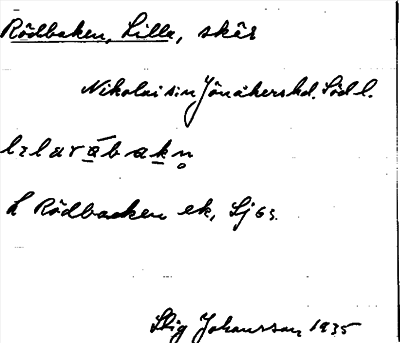 Rödbaken, Lilla, skär
Nikolai s:n Jönåkers hd. Södl.
L Rödbacken ek, Sj
Stig Johansson 1935